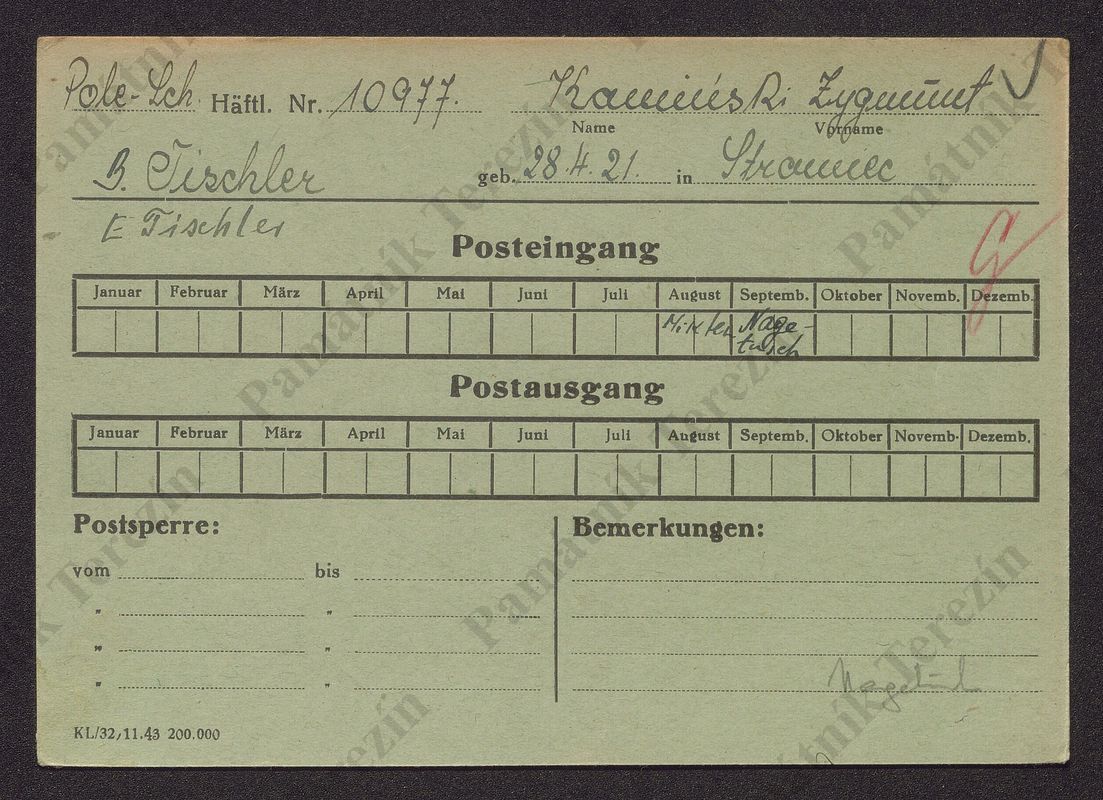 Pole-Sch. Häftl. Nr. 10977. Kamiński Zygmunt
Name Vorname
B. Tischler geb. 28.4.21. in Stromiec
E Tischler
Posteingang
Januar Februar März April Mai Juni Juli August Septemb. Oktober Novemb. Dezemb.
Nage-
tusch
Postausgang
Januar Februar März April Mai Juni Juli August Septemb. Oktober Novemb. Dezemb.
Postsperre: Bemerkungen:
vom bis
" "
" "
" "
KL/32/11.43 200.000
Památník Terezín